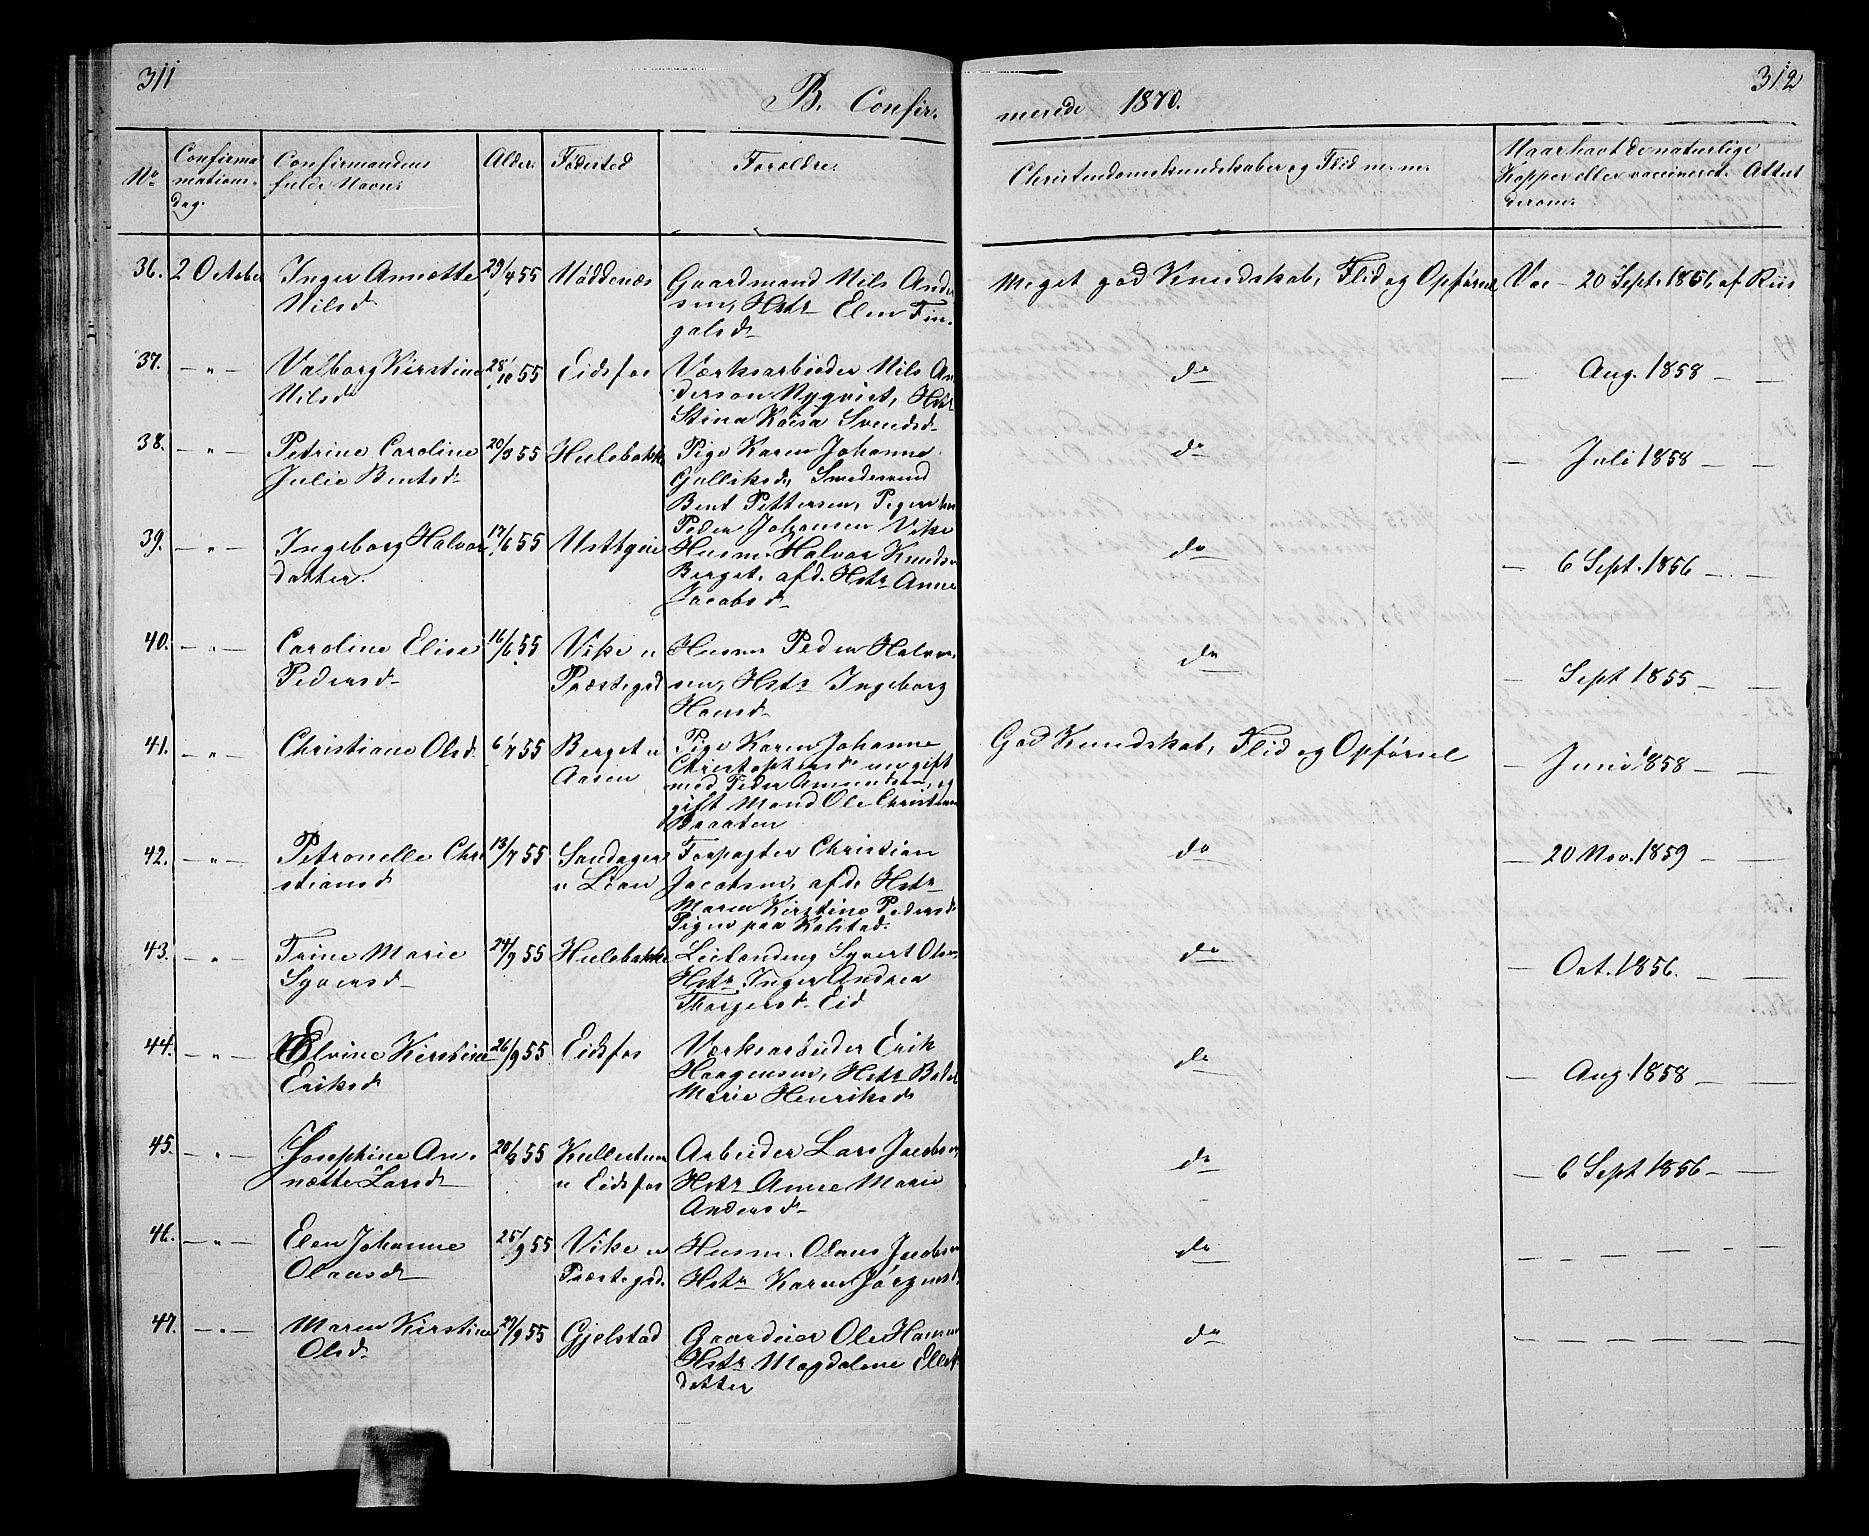 311
B. Confir-
No
Confirma-
mations-
dag.
Confirmandens
fulde Navn.
Alder.
Fødested
Forældre.
36. 2 October Inger Annette 29/4 55 Møddenæs Gaardmand Nils Ander
Nilsd. sen, Hstr Elen Fin-
galsd.
37. — „ — Valborg Kirstine 28/10 55 Eidsfos Værksarbeider Nils An-
Nilsd. derson Nyqvist, Hstr
Stina Kaisa Svendsd.
38. — „ — Petrine Caroline 20/3 55 Hulebakke Pige Karen Johanne
Julie Bentsd. Gulliksd, Smedesvend
Bent Pettersen,
Peder Johansen Vike
39. — „ — Ingeborg Halvor 17/6 55 Husm. Halvor Knuds
datter. Berget. afd. Hstr Anne
Jacobsd.
40. — „ — Caroline Elise 16/6 55 Vike u Husm Peder Halvor
Pedersd. Præstegrd sen, Hstr Ingeborg
Hansd.
41. — „ — Christiane Olsd. 6/7 55 Berget u Pige Karen Johanne
Aasen Christophersd. nu gift
med Peder Amundsen, og
gift Mand Ole Christian
Braaten
42. — „ — Petronelle Chri 13/7 55 Sandager Forpagter Christian
stiansd u Lian Jacobsen, afde Hstr
Maren Kirstine Pedersd.
Pigen paa Kolstad.
43. — „ — Trine Marie 24/9 55 Hulebakke Leilending Syvert Olsen
Syversd. Hstr Inger Andrea
Thorgersd. Eid
44. — „ — Elvine Kirstine 26/9 55 Eidsfos Værksarbeider Erik
Eriksd. Haagensen, Hstr
Marie Henriksd.
45. — „ — Josephine An- 55 Arbeider Lars Jacobsen
nette Larsd. u Eidsfos Hstr Anne Marie
Andersd.
46. — „ — Elen Johanne 25/9 55 Vike u Husm. Olaus Jacobsen
Olausd. Præstegrd. Hstr Karen Jørgensd.
47. — „ — Maren Kirstine 29/9 55 Gjelstad Gaardeier Ole Hansen
Olsd. Hstr Magdalene Ellef
datter
312
merede 1870.
Christendomskundskaber og Flid m. m.
Naar havt de naturlige
Kopper eller vaccineret. Attest
derom.
Meget god Kundskab, Flid og Opførsel Vac — 20 Sept. 1856 af Riis
do — Aug. 1858 — —
do — Juli 1858 — —
do — 6 Sept. 1856 — —
do — Sept 1855 — —
God Kundskab, Flid og Opførsel — Juni 1858 — —
do — 20 Nov. 1859 — —
do — Oct. 1856. — —
do — Aug 1858 — —
do — 6 Sept 1856 — —
do — — — — — —
do — — — — — —